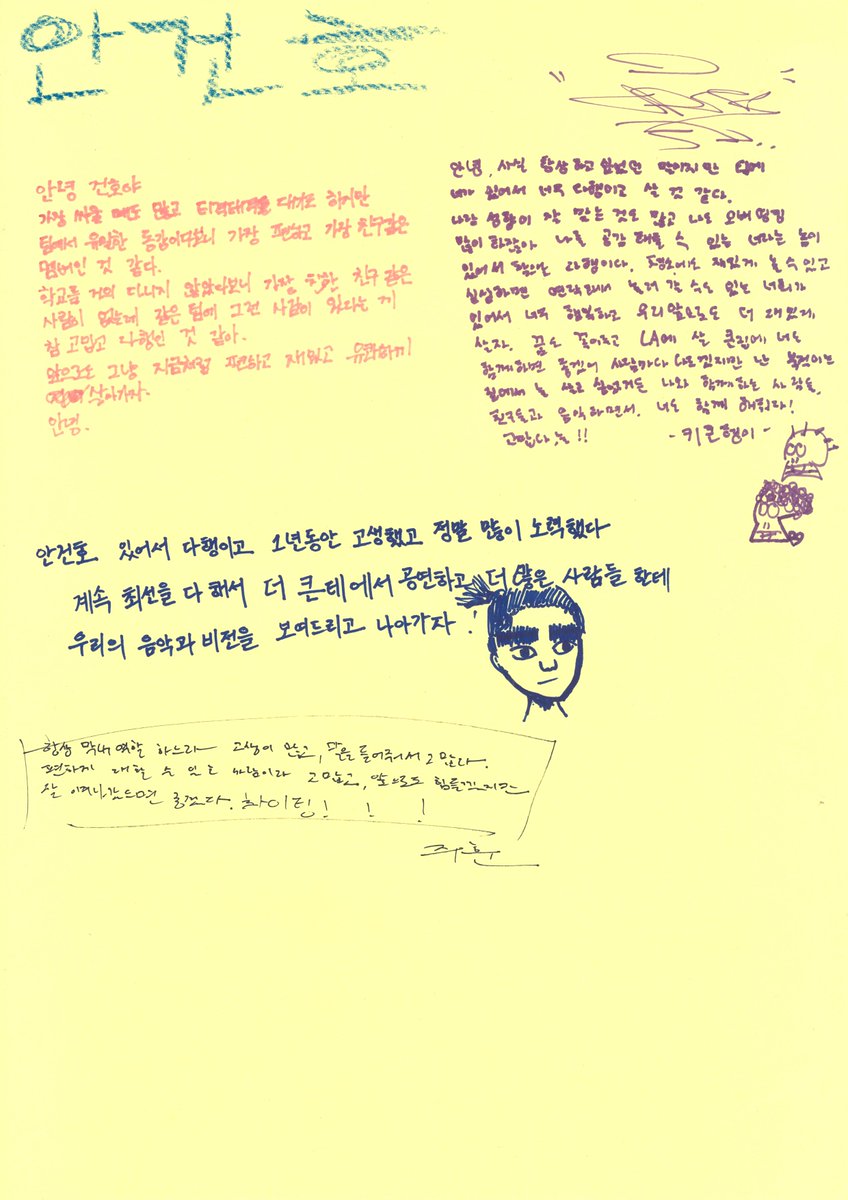 안건호
안녕 건호야
가장 싸울 때도 많고 티격태격을 대기도 하지만
팀에서 유일한 동갑이다보니 가장 편하고 가장 친구같은
멤버인 것 같다.
학교를 거의 다니지 않았다보니 가장 친한 친구 같은
사람이 없는데 같은 팀에 그런 사람이 있다는 게
참 고맙고 다행인 것 같아.
앞으로도 그냥 지금처럼 편하고 재밌고 유쾌하게
살아가자.
안녕.
안녕, 사실 항상 하고 싶었던 말이지만 팀에
네가 있어서 너무 다행이고 살 것 같다.
나랑 성향이 잘 맞는 것도 많고 나도 오버띵킹
많이 하잖아 나를 공감 해줄 수 있는 너라는 놈이
있어서 참으로 다행이다. 평소에도 재밌게 놀 수 있고
심심하면 연락해서 놀러 갈 수도 있는 너희가
있어서 너무 행복하고 우리 앞으로도 더 재밌게
살자. 꿈도 꿈이라고 LA에 살 큰집에 너도
함께하면 좋겠어 사람마다 다르겠지만 난 북적이는
집에서 늘 살고 싶었거든 나와 함께하는 사람들,
친구들과 음악하면서. 너도 함께 해줘라!
고맙다,늘!!
-키큰형이-
안건호 있어서 다행이고 1년동안 고생했고 정말 많이 노력했다
계속 최선을 다 해서 더 큰데에서 공연하고 더 많은 사람들 한테
우리의 음악과 비전을 보여드리고 나아가자!
항상 막내역할 하느라 고생이 많고, 말을 들어줘서 고맙다.
편하게 대할 수 있는 사람이라 고맙고, 앞으로도 힘들겠지만
잘 이겨나갔으면 좋겠다. 화이팅! ! !
주훈